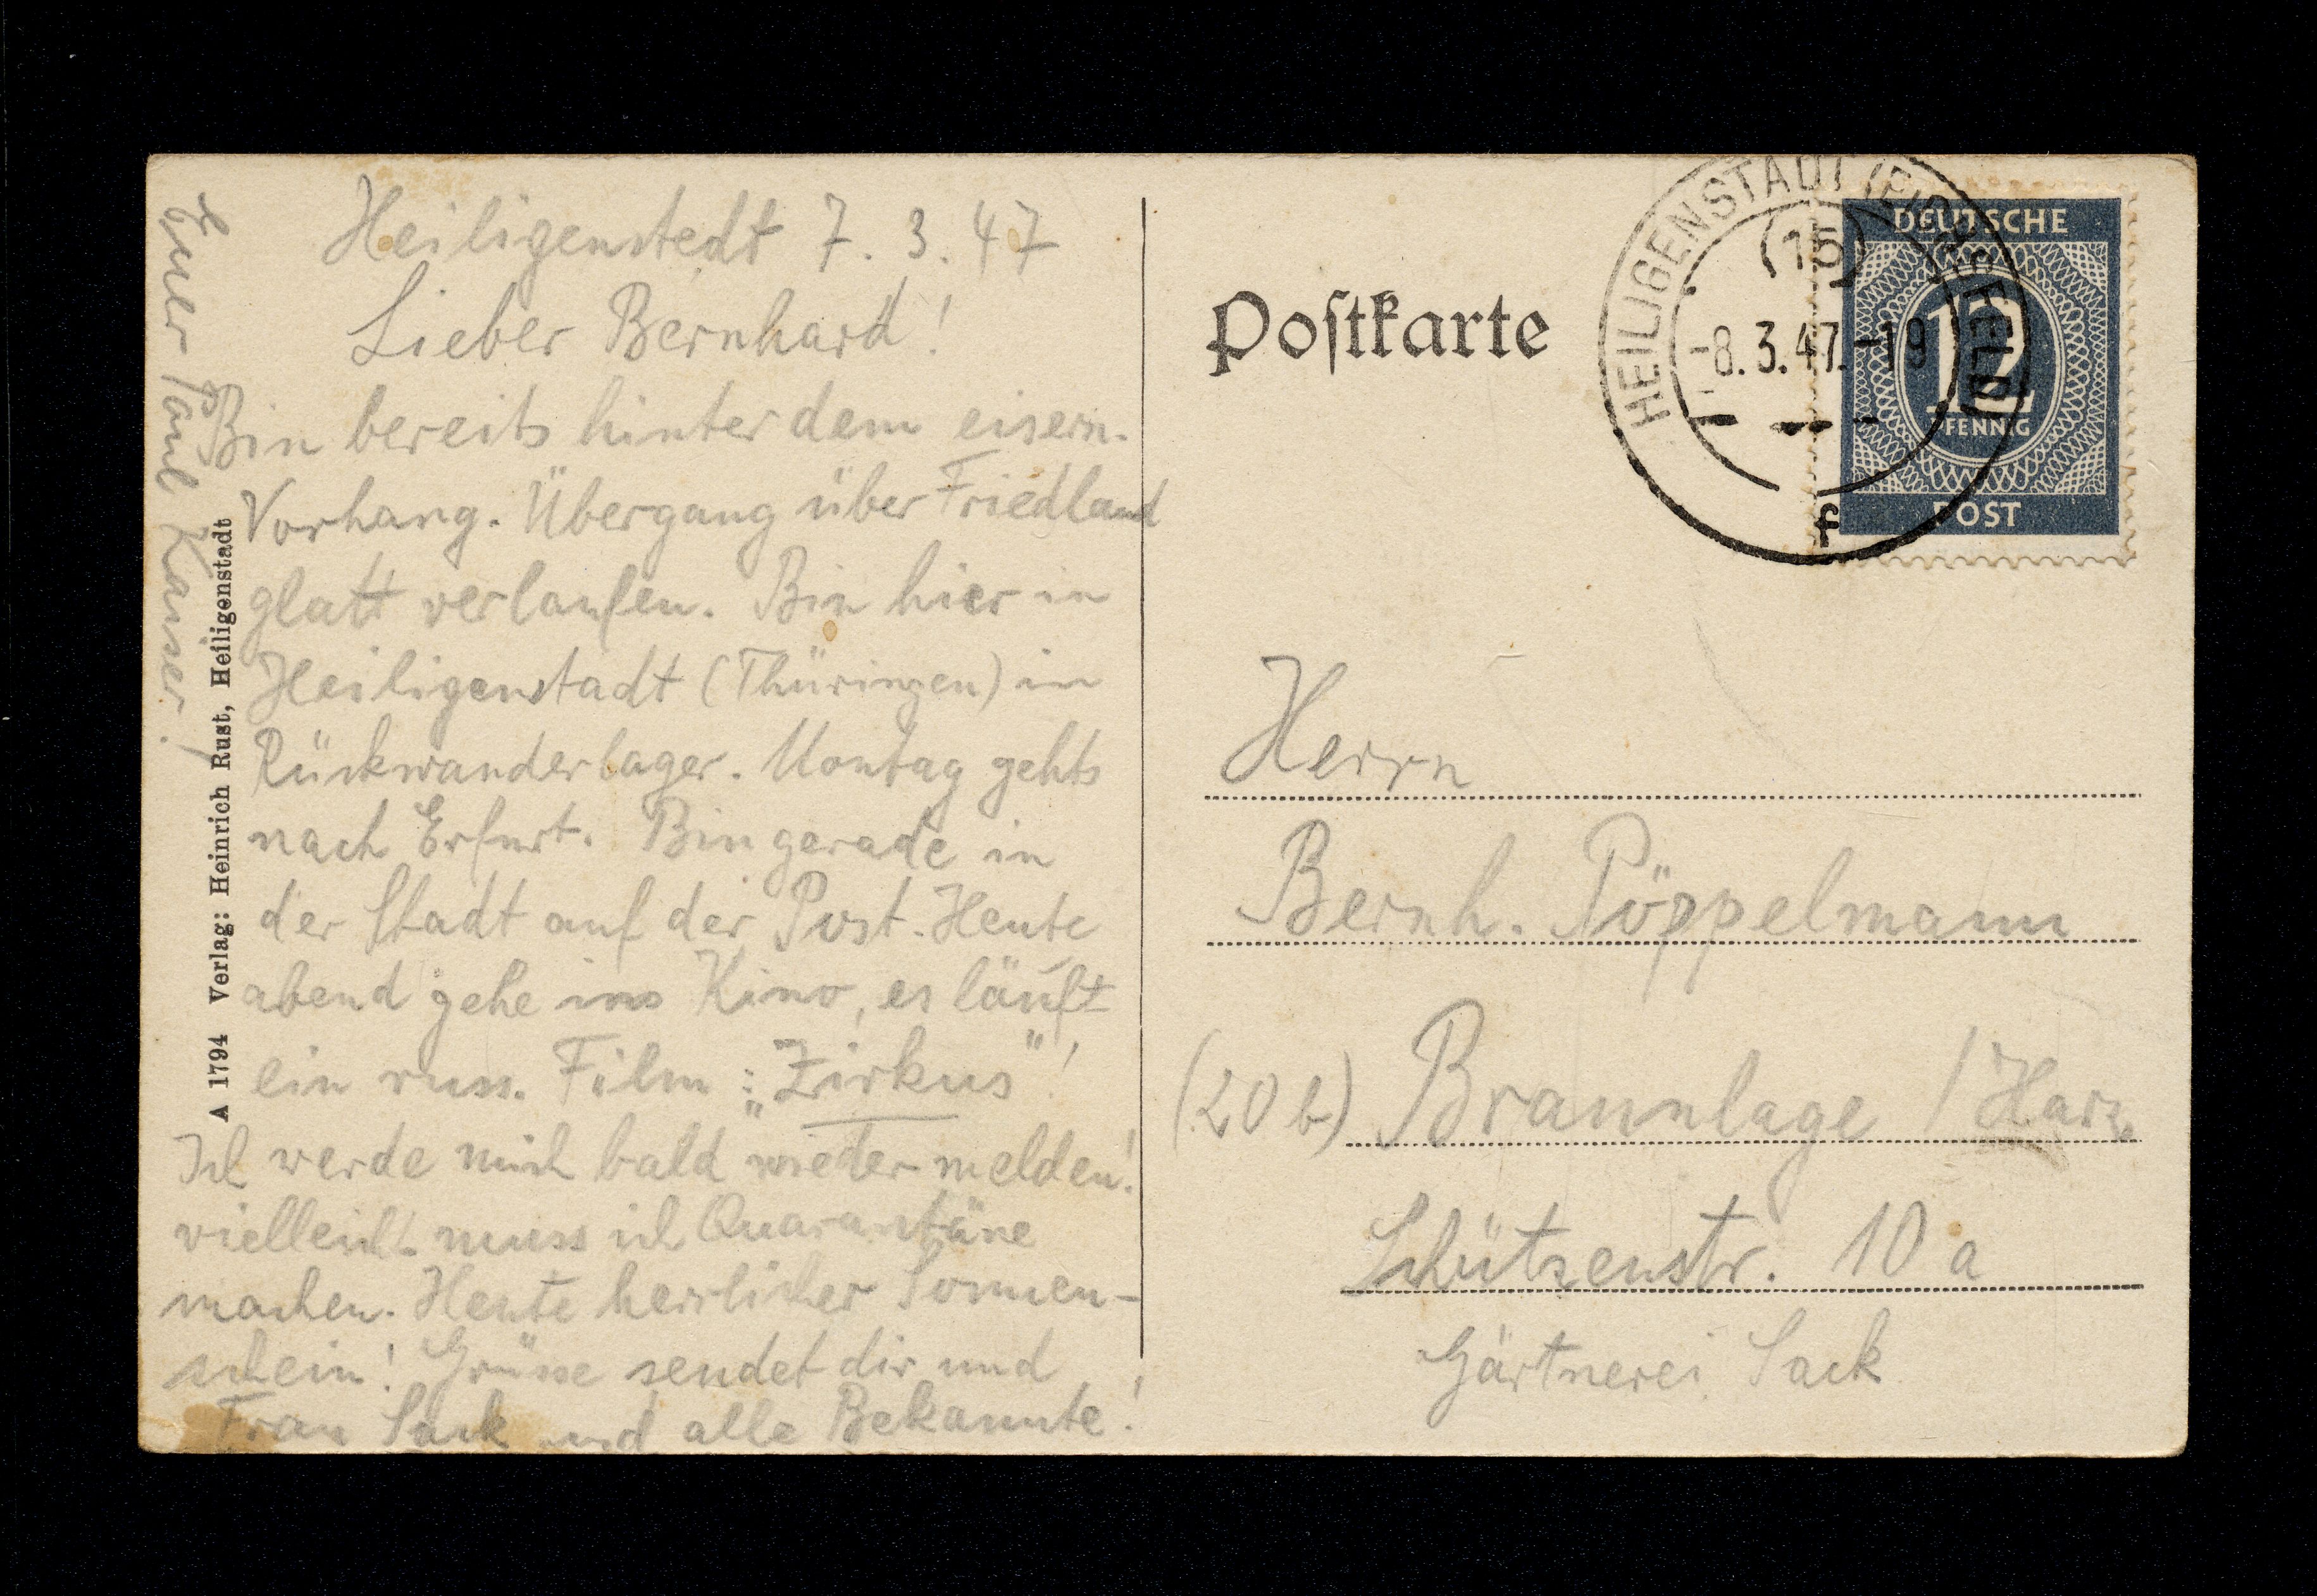 Heiligenstedt 7. 3. 47
Lieber Bernhard!
Bin bereits hinter dem eisern.
Vorhang. Übergang über Friedland
glatt verlaufen. Bin hier in
Heiligenstadt (Thüringen) in
Rückwanderlager. Montag gehts
nach Erfurt. Bin gerade in
der Stadt auf der Post. Heute
abend gehe ins Kino, es läuft
ein russ. Film: „Zirkus"!
Ich werde mich bald wieder melden!
vielleicht muss ich Quarantäne
machen. Heute herrlicher Sonnen-
schein! Grüsse sendet dir und
Frau Sack und alle Bekannte!
Euer Paul Kaiser.
A 1794 Verlag: Heinrich Rust, Heiligenstadt
Postkarte
HEILIGENSTADT (EICHSFELD)
(15)
-8.3.47.-19
f
DEUTSCHE
12
PFENNIG
POST
Herrn
Bernh. Pöppelmann
(20 b) Braunlage / Harz
Schützenstr. 10 a
Gärtnerei Sack